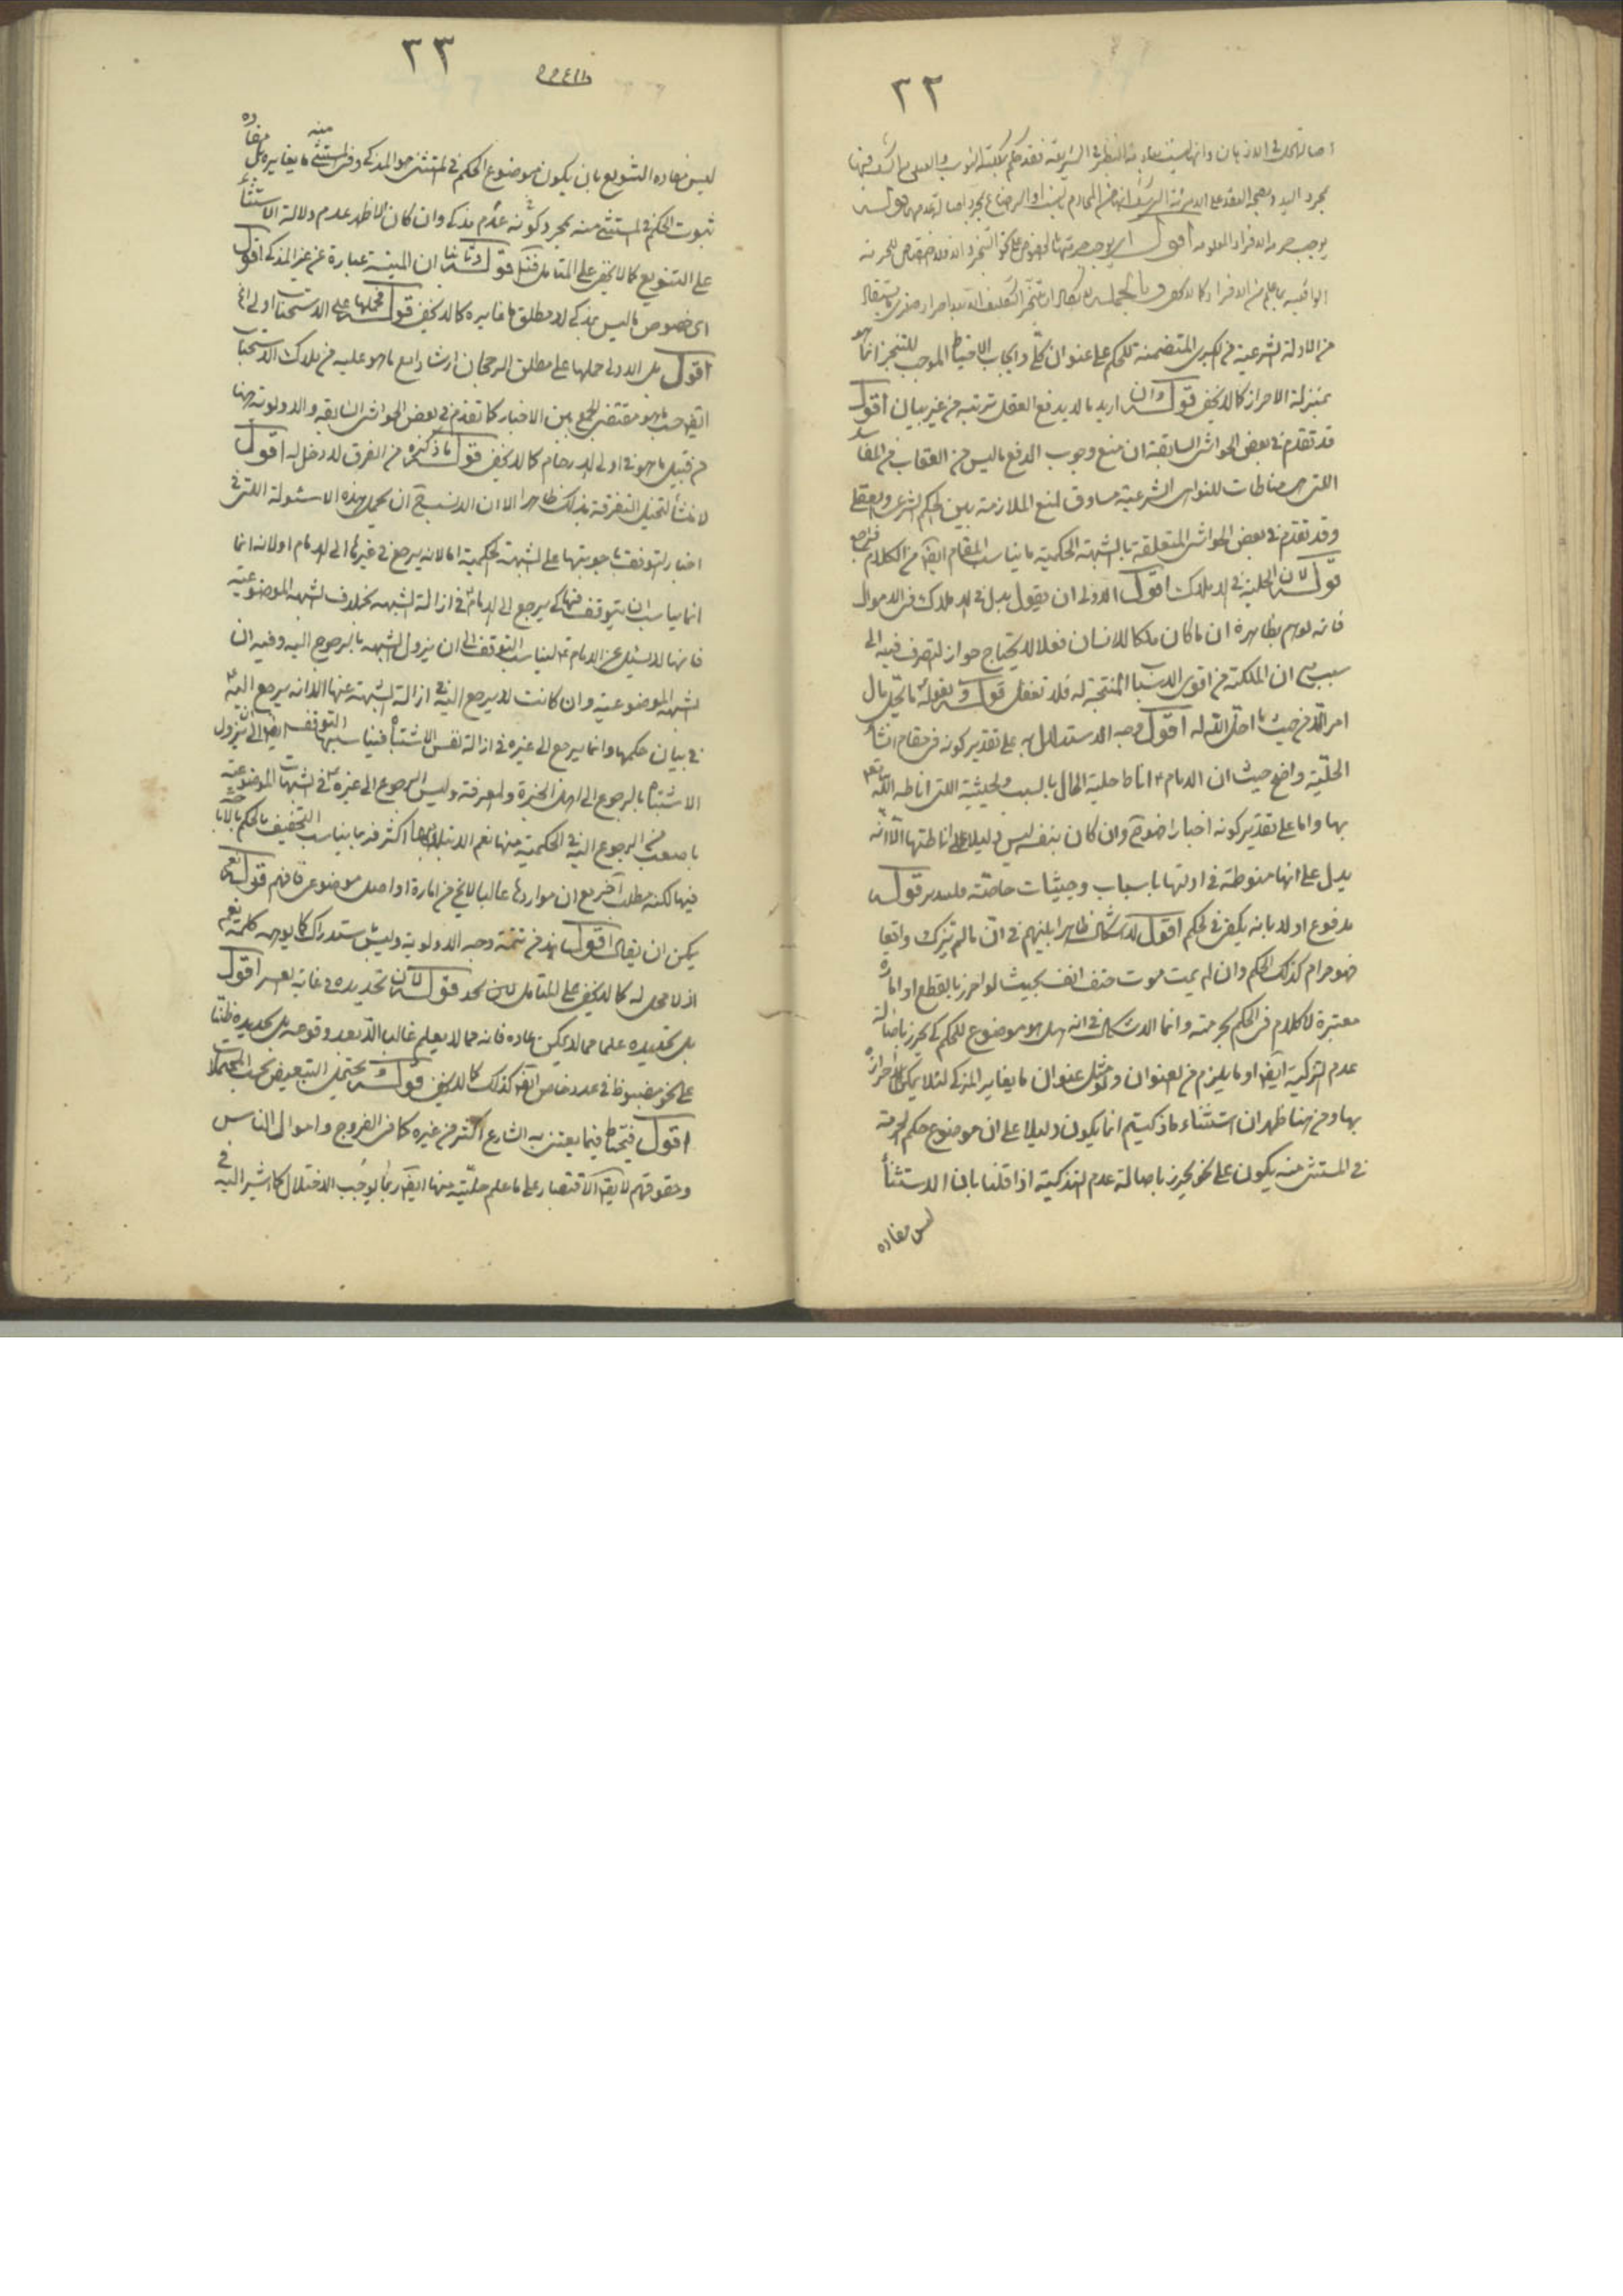 ٢٢
أصالة الحل في
بمجرد اليد
يوجب حرمة الافراد المعلومة اقول
الباقية بما علم من الافراد كما لا يخفى وبالجملة
من الادلة الشرعية من الكبرى المتضمنة للحكم على عنوان كلي وايجاب الاحتياط الموجب للتنجز انما هو
بمنزلة الاحراز كما لا يخفى قوله وان اريد ما لا يدفع العقل ترتبه من غير بيان اقول
قد تقدم في بعض الحواشي السابقة ان منع وجوب الدفع ما ليس من العقاب من المفاسد
اللتي هي مناطات للنواهي الشرعية مساوق لمنع الملازمة بين الحكم الشرعي والعقلي
وقد تقدم في بعض الحواشي المتعلقة بالشبهة الحكمية ما يناسب المقام ايضا من الكلام فراجع
قوله لان الحلية في الاملاك اقول الاولى ان يقول بدل في الاملاك في الاموال
فانه يوهم بظاهره ان ما كان ملكا للانسان فعلا لا يحتاج جواز التصرف فيه الى
سبب مع ان الملكية من اقوى الاسباب المنتجة له فلا تغفل قوله وبقوله ما يحل مال
امرء الا من حيث ما احل الله له اقول وجه الاستدلال به على تقدير كونه في مقام انشاء
الحلية واضح حيث ان الامام ع اناط حلية المال بالسبب والحيثية اللتي اناطه الله تع
بها واما على تقدير كونه اخبارا فهو وان كان بنفسه ليس دليلا على اناطتها الا انه
يدل على انها منوطة في ادلتها باسباب وحيثيات خاصة فليتدبر قوله
مدفوع اولا بانه يكفي في الحكم اقول لا اشكال ظاهرا بينهم في ان ما لم يذك واقعا
فهو حرام كذلك الحكم وان لم يمت موت حتف انفه بحيث لو احرز بالقطع او امارة
معتبرة لا كلام في الحكم بحرمته وانما الاشكال في انه هل هو موضوع للحكم كي يحرز باصالة
عدم التذكية ايضا او ما يلزم من العنوان ولو مثل عنوان ما يغاير المذكى لئلا يمكن احرازه
بها ومن هنا ظهر ان استثناء ما ذكيتم انما يكون دليلا على ان موضوع حكم الحرمة
في المستثنى منه يكون على نحو يحرز باصالة عدم التذكية اذا قلنا بان الاستثناء
ليس مفاده
٣٣
ليس مفاده التنويع بان يكون موضوع الحكم في المستثنى هو المذكى وفي المستثنى منه ما يغايره بل مفاده
ثبوت الحكم في المستثنى منه بمجرد كونه غير مذكى وان كان الاظهر عدم دلالة الاستثناء
على التنويع كما لا يخفى على المتامل فتامل قوله وثانيا ان الميتة عبارة عن غير المذكى اقول
اي خصوص ما ليس بمذكى لا مطلق ما غايره كما لا يخفى قوله فحملها على الاستحباب اولى
اقول بل الاولى حملها على مطلق الرجحان ارشادا مع ما هو عليه من ملاك الاستحباب
ايضا حسب ما هو مقتضى الجمع بين الاخبار كما تقدم في بعض الحواشي السابقة والاولوية هنا
من قبيل ما هو في اولي الارحام كما لا يخفى قوله ما ذكر من الفرق لا دخل له اقول
لا منشأ لتخيل التفرقة بذلك ظاهرا الا ان الانسب ان يحمل هذه الاسئولة اللتي في
اخبار التوقف باجوبتها على الشبهة الحكمية اما لانه يرجع في غيرها الى الامام اولا لانه انما
انما يناسب ان يتوقف فيها كي يرجع الى الامام ع في ازالة الشبهة بخلاف الشبهة الموضوعية
فانها لا يسئل عن الامام ع ليناسب التوقف الى ان يزول الشبهة بالرجوع اليه وفيه ان
الشبهة الموضوعية وان كانت لا يرجع اليه في ازالة الشبهة عنها الا انه يرجع اليه ع
في بيان حكمها وانما يرجع الى غيره في ازالة نفس الاشتباه فيناسبها التوقف ايضا الى ان يزول
الاشتباه بالرجوع الى اهل الخبرة والمعرفة وليس الرجوع الى غيره ع في الشبهات الموضوعية
باصعب من الرجوع اليه في الحكمية منها نعم الابتلاء بها اكثر فربما يناسب التخفيف بالحكم بالاباحة
فيها لكنه مطلب آخر مع ان مواردها غالبا لا يخ من امارة او اصل موضوعي فافهم قوله نعم
يمكن ان يقال اقول هذا من تتمة وجه الاولوية وليس استدراك كما يوهمه كلمة نعم
اذ لا محل له كما لا يخفى على المتامل قوله لان تحديده في غاية العسر اقول
بل تحديده علما مما لا يمكن عادة فانه مما لا يعلم غالبا الا بعد وقوعه بل تحديده ظنا
على نحو مضبوط في عدد خاص ايضا كذلك كما لا يخفى قوله ويحتمل التبعيض بحسب المحتملات
اقول فيحتاط فيما يعتني به الشارع اكثر من غيره كما في الفروج واموال الناس
وحقوقهم لا يقال الاقتصار على ما علم حليته منها ايضا ربما يوجب الاختلال كما اشير اليه في